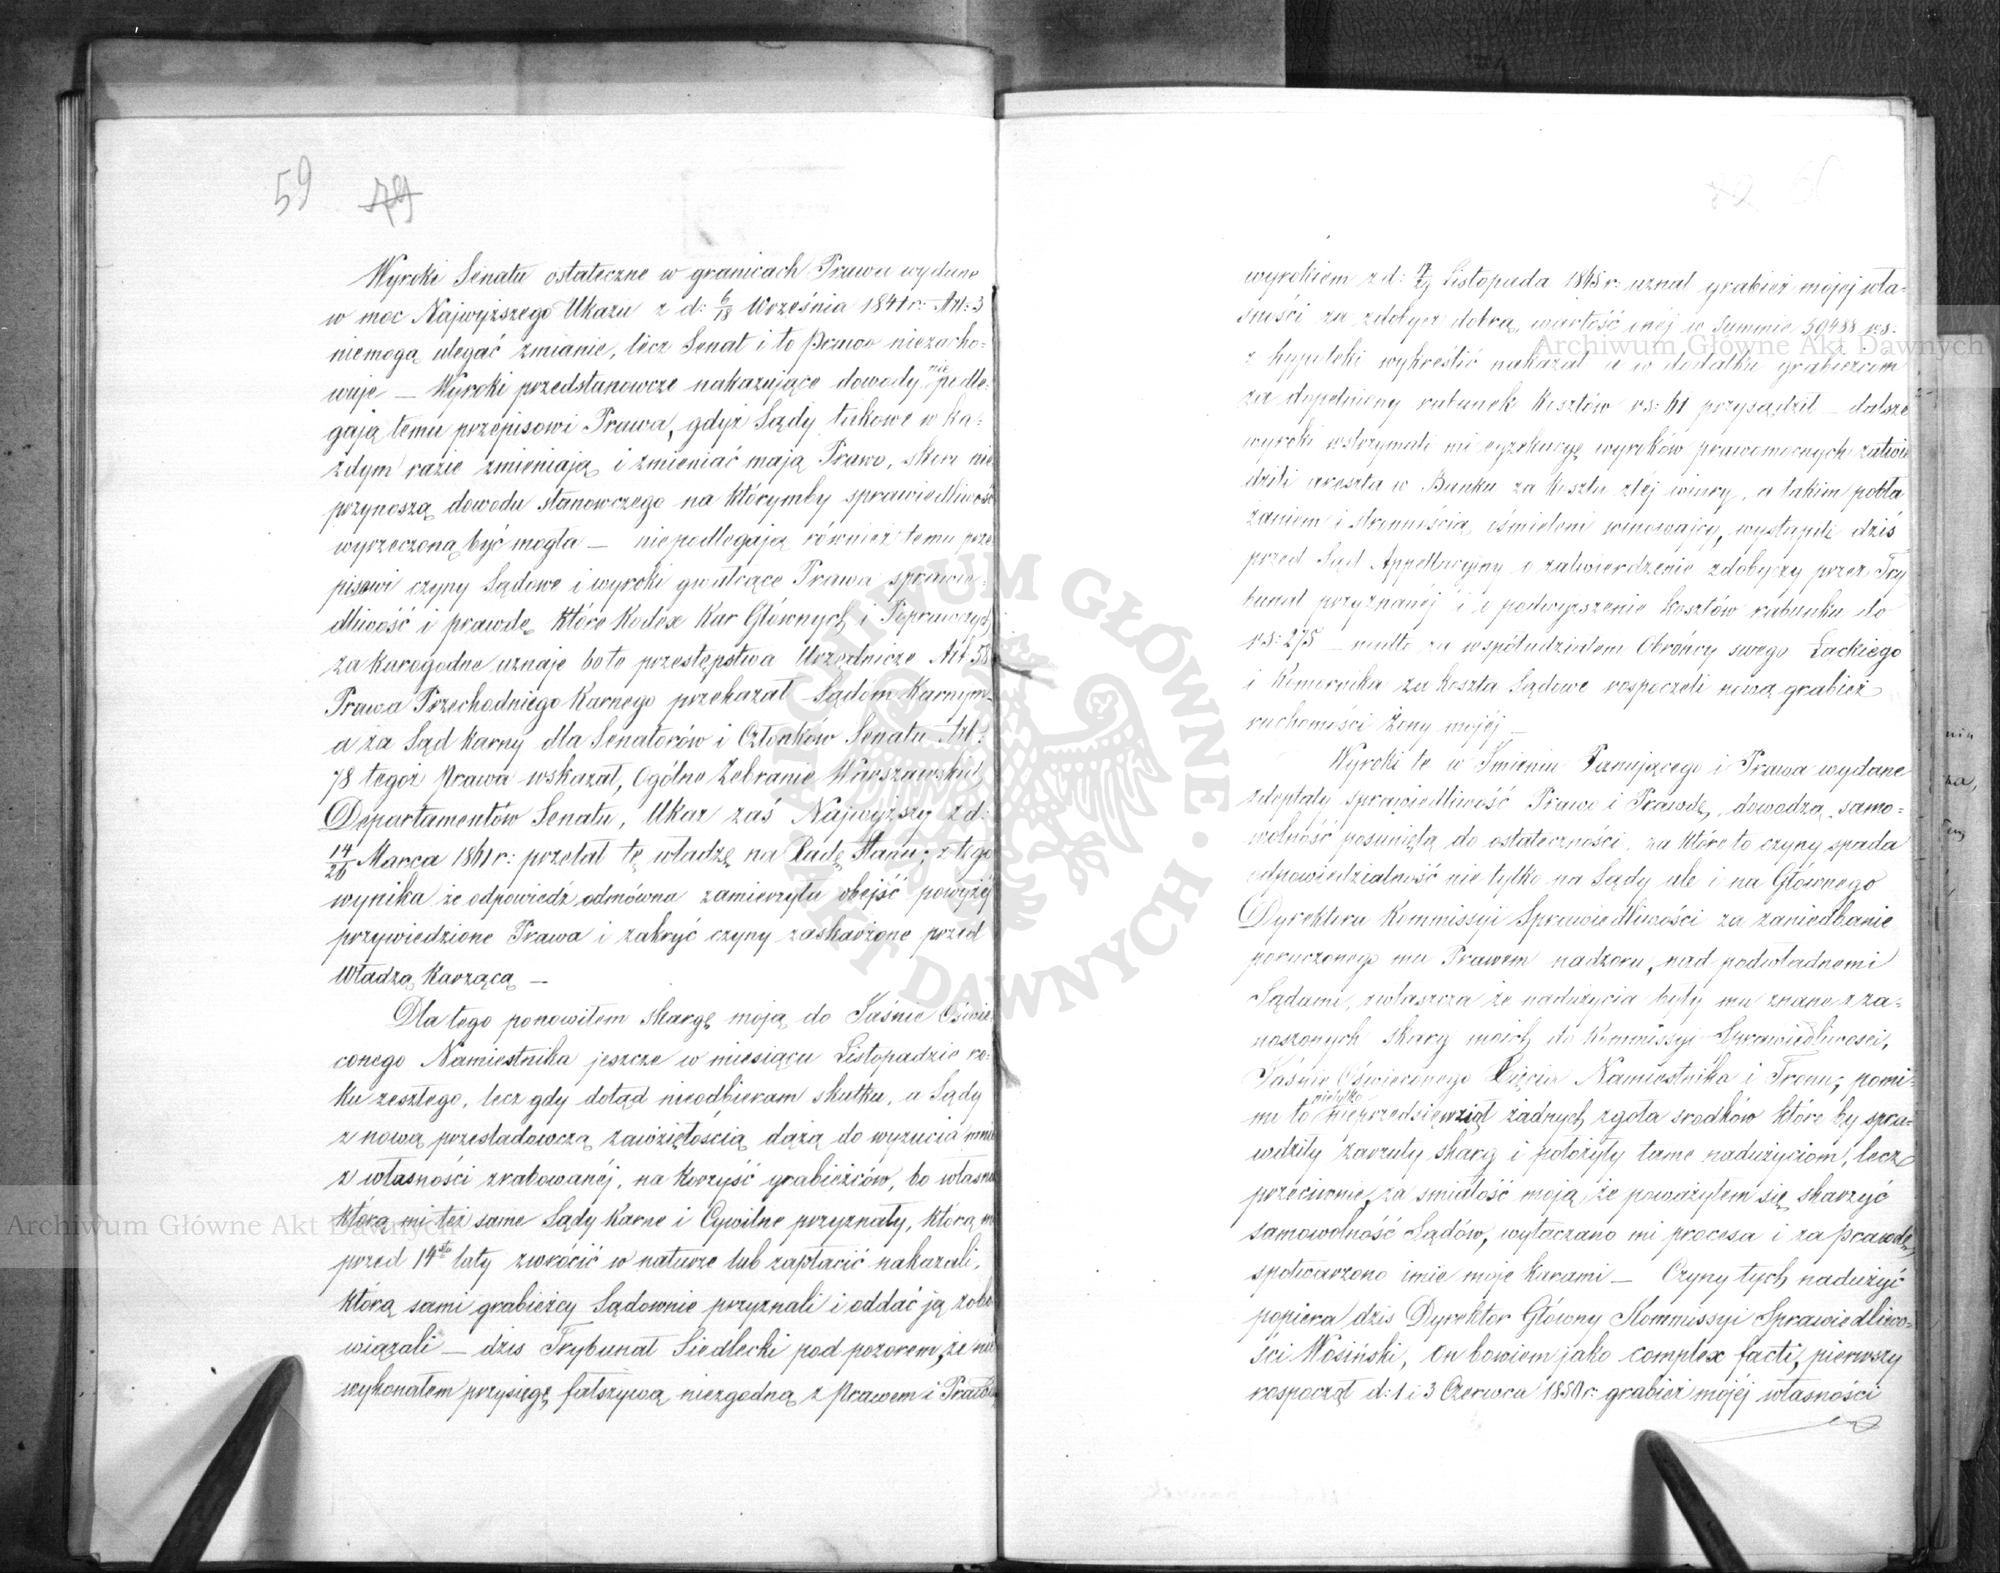 59 79
Wyroki Senatu ostateczne w granicach Prawa wydane
w moc Najwyższego Ukazu z d: 6/18 Września 1841 r: Art: 3
niemogą ulegać zmianie, lecz Senat i to Prawo niezacho-
wuje — Wyroki przedstanowcze nakazujące dowody nie podle-
gają temu przepisowi Prawa, gdyż Sądy takowe w ka-
żdym razie zmieniają i zmieniać mają Prawo, skoro nie
przynoszą dowodu stanowczego na którymby sprawiedliwość
wyrzeczoną być mogła — niepodlegają również temu prze
pisowi czyny Sądowe i wyroki gwałcące Prawa sprawie-
dliwość i prawdę które Kodex Kar Głównych i Poprawczych
za karogodne uznaje bo te przestępstwa Urzędnicze Art 58
Prawa Przechodniego Karnego przekazał Sądom Karnym
a za Sąd karny dla Senatorów i Członków Senatu Art:
78 tegoż Prawa wskazał, Ogólne Zebranie Warszawskich
Departamentów Senatu, Ukaz zaś Najwyższy z d:
14/26 Marca 1861 r: przelał tę władzę na Radę Stanu; z tego
wynika że odpowiedź odmówna zamierzyła obejść powyżej
przywiedzione Prawa i zakryć czyny zaskarżone przed
Władzą karzącą —
Dla tego ponowiłem skargę moją do Jaśnie Oświe-
conego Namiestnika jeszcze w miesiącu Listopadzie ro-
ku zeszłego, lecz gdy dotąd nieodbieram skutku, a Sądy
z nową prześladowczą zawziętością dążą do wyzucia mnie
z własności zrabowanéj, na korzyść grabieżców, bo własno
którą mi też same Sądy Karne i Cywilne przyznały, którą mi
przed 14stu laty zwrócić w naturze lub zapłacić nakazali,
którą sami grabieżcy Sądownie przyznali i oddać ją zobo
wiązali — dziś Trybunał Siedlecki pod pozorem, że nie
wykonałem przysięgę fałszywą niezgodną z Prawem i Prawdą
wyrokiem z d: 7/19 Listopada 1865 r: uznał grabież mojéj wła-
sności za zdobycz dobrą, wartość onéj w Summie 59488 rs:
z hypoteki wykreślić nakazał a w dodatku grabieżcom
za dopełniony rabunek kosztów rs: 61 przysądził — dalsze
wyroki wstrzymali mi exzekucyę wyroków prawomocnych zatwie
dzili areszta w Banku za koszta złéj wiary, a takim pobła
żaniem i stronnością ośmieleni winowajcy, wystąpili dziś
przed Sąd Appellacyjny o zatwierdzenie zdobyczy przez Try
bunał przyznanéj i o podwyższenie kosztów rabunku do
rs: 275 — nadto za współudziałem Obrońcy swego Łąckiego
i Komornika za koszta Sądowe rospoczeli nową grabież
ruchomości Żony mojéj —
Wyroki te w Imieniu Panującego i Prawa wydane
zdeptały sprawiedliwość Prawo i Prawdę, dowodzą samo-
wolność posuniętą do ostateczności, za które to czyny spada
odpowiedzialność nie tylko na Sądy ale i na Głównego
Dyrektora Kommissyi Sprawiedliwości za zaniedbanie
poruczonego mu Prawem nadzoru, nad podwładnemi
Sądami, zwłaszcza że nadużycia były mu znane z za-
noszonych skarg moich do Kommissyi Sprawiedliwości,
Jaśnie Oświeconego Xięcia Namiestnika i Tronu; pomi-
mo to nietylko nieprzedsięwziął żadnych zgoła srodków które by spra-
wdziły zarzuty skarg i położyły tame nadużyciom, lecz
przeciwnie, za smiałość moją że poważyłem się skarżyć
samowolność Sądów, wytaczano mi procesa i za prawdę
spotwarzono imie moje karami — Czyny tych nadużyć
popiera dziś Dyrektor Główny Kommissyi Sprawiedliwo-
ści Wosiński, on bowiem jako complex facti, pierwszy
rospoczął d: 1 i 3 Czerwca 1850 r: grabież mojéj własności
Archiwum Główne Akt Dawnych
Archiwum Główne Akt Dawnych
ARCHIWUM GŁÓWNE AKT DAWNYCH